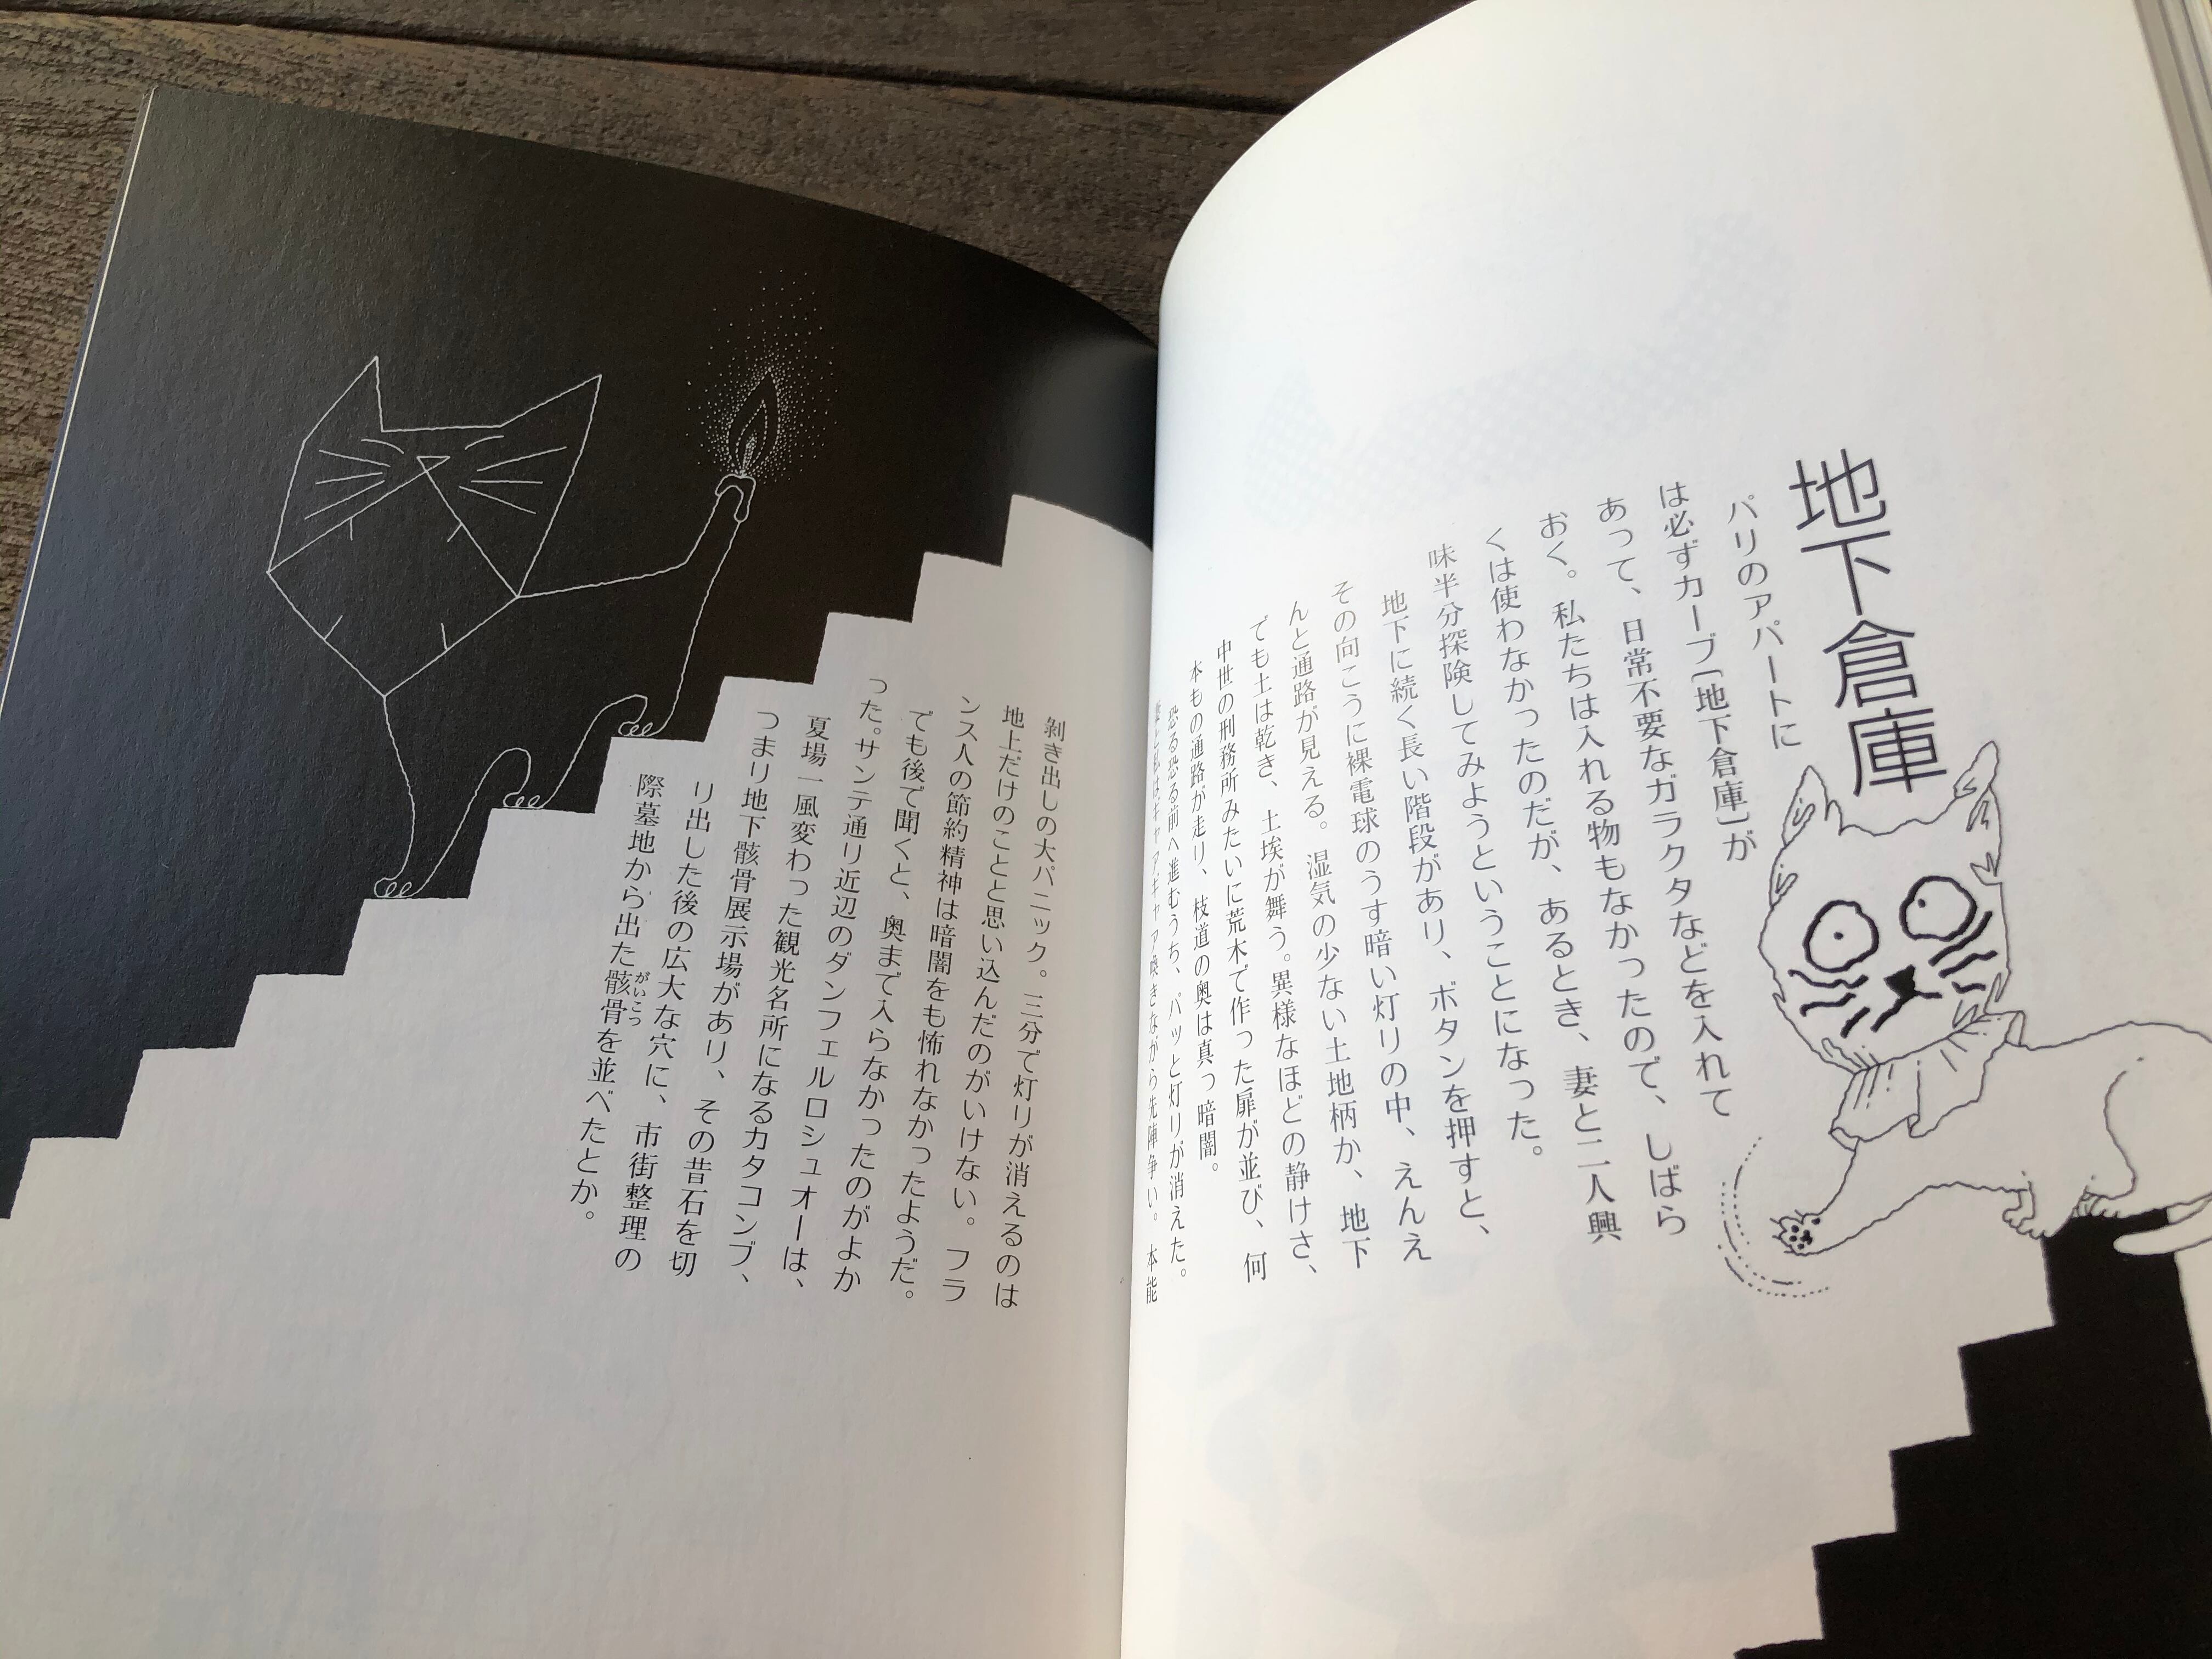 地下倉庫
パリのアパートに
は必ずカーブ[地下倉庫]が
あって、日常不要なガラクタなどを入れて
おく。私たちは入れる物もなかったので、しばら
くは使わなかったのだが、あるとき、妻と二人興
味半分探険してみようということになった。
地下に続く長い階段があり、ボタンを押すと、
その向こうに裸電球のうす暗い灯りの中、えんえ
んと通路が見える。湿気の少ない土地柄か、地下
でも土は乾き、土埃が舞う。異様なほどの静けさ、
中世の刑務所みたいに荒木で作った扉が並び、何
本もの通路が走り、枝道の奥は真っ暗闇。
恐る恐る前へ進むうち、パッと灯りが消えた。
妻と私はギャアギャア喚きながら先陣争い。本能
剥き出しの大パニック。三分で灯りが消えるのは
地上だけのことと思い込んだのがいけない。フラ
ンス人の節約精神は暗闇をも怖れなかったようだ。
でも後で聞くと、奥まで入らなかったのがよか
った。サンテ通り近辺のダンフェルロシュオーは、
夏場一風変わった観光名所になるカタコンブ、
つまり地下骸骨展示場があり、その昔石を切
り出した後の広大な穴に、市街整理の
際墓地から出た骸骨を並べたとか。
がいこつ